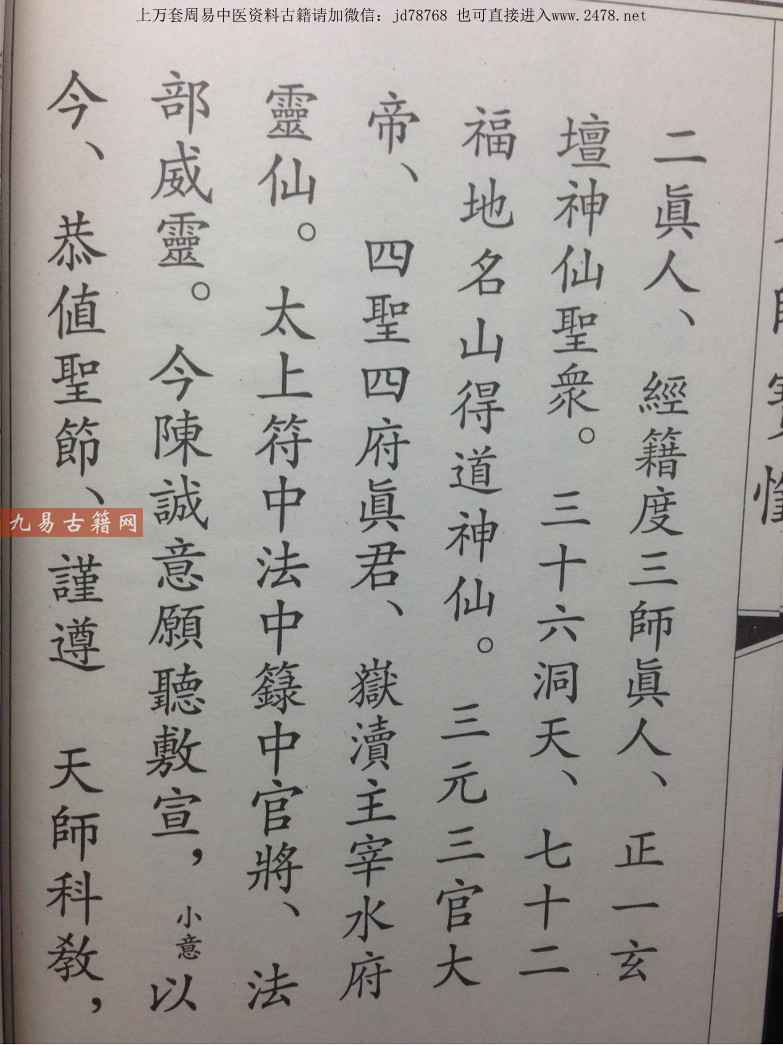 上万套周易中医资料古籍请加微信：jd78768 也可直接进入www.2478.net
二眞人、 經籍度三師眞人、 正一玄
壇神仙聖衆。 三十六洞天、 七十二
福地名山得道神仙。 三元三官大
帝、 四聖四府眞君、 嶽瀆主宰水府
靈仙。 太上符中法中籙中官將、 法
部威靈。 今陳誠意願聽敷宣， 小意 以
今、 恭値聖節、 謹遵 天師科教，
九易古籍网